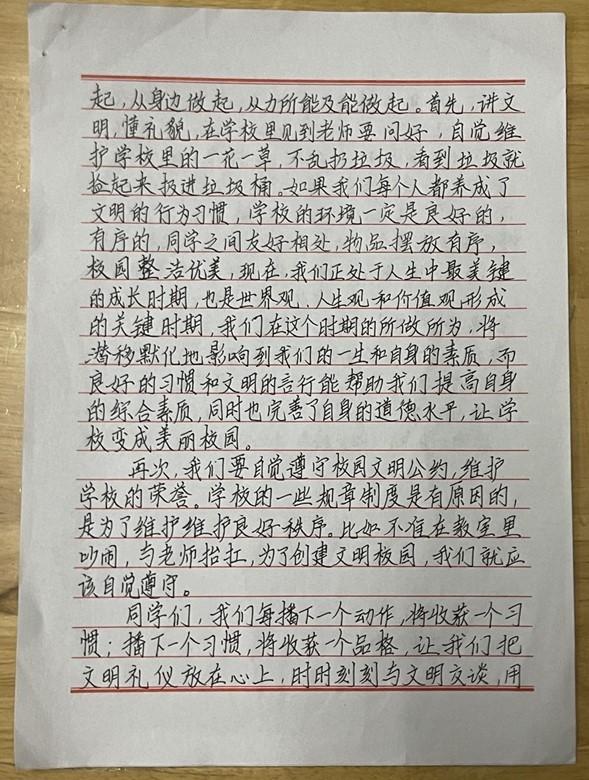 起,从身边做起,从力所能及能做起。首先,讲文
明,懂礼貌,在学校里见到老师要问好,自觉维
护学校里的一花一草,不乱扔垃圾,看到垃圾就
捡起来扔进垃圾桶。如果我们每个人都养成了
文明的行为习惯,学校的环境一定是良好的,
有序的,同学之间友好相处,物品摆放有序,
校园整洁优美,现在,我们正处于人生中最关键
的成长时期,也是世界观、人生观和价值观形成
的关键时期,我们在这个时期的所做所为,将
潜移默化地影响到我们的一生和自身的素质,而
良好的习惯和文明的言行能帮助我们提高自身
的综合素质,同时也完善了自身的道德水平,让学
校变成美丽校园。
再次,我们要自觉遵守校园文明公约,维护
学校的荣誉。学校的一些规章制度是有原因的,
是为了维护维护良好秩序。比如不准在教室里
吵闹,与老师抬扛,为了创建文明校园,我们就应
该自觉遵守。
同学们,我们每播下一个动作,将收获一个习
惯;播下一个习惯,将收获一个品格,让我们把
文明礼仪放在心上,时时刻刻与文明交谈,用